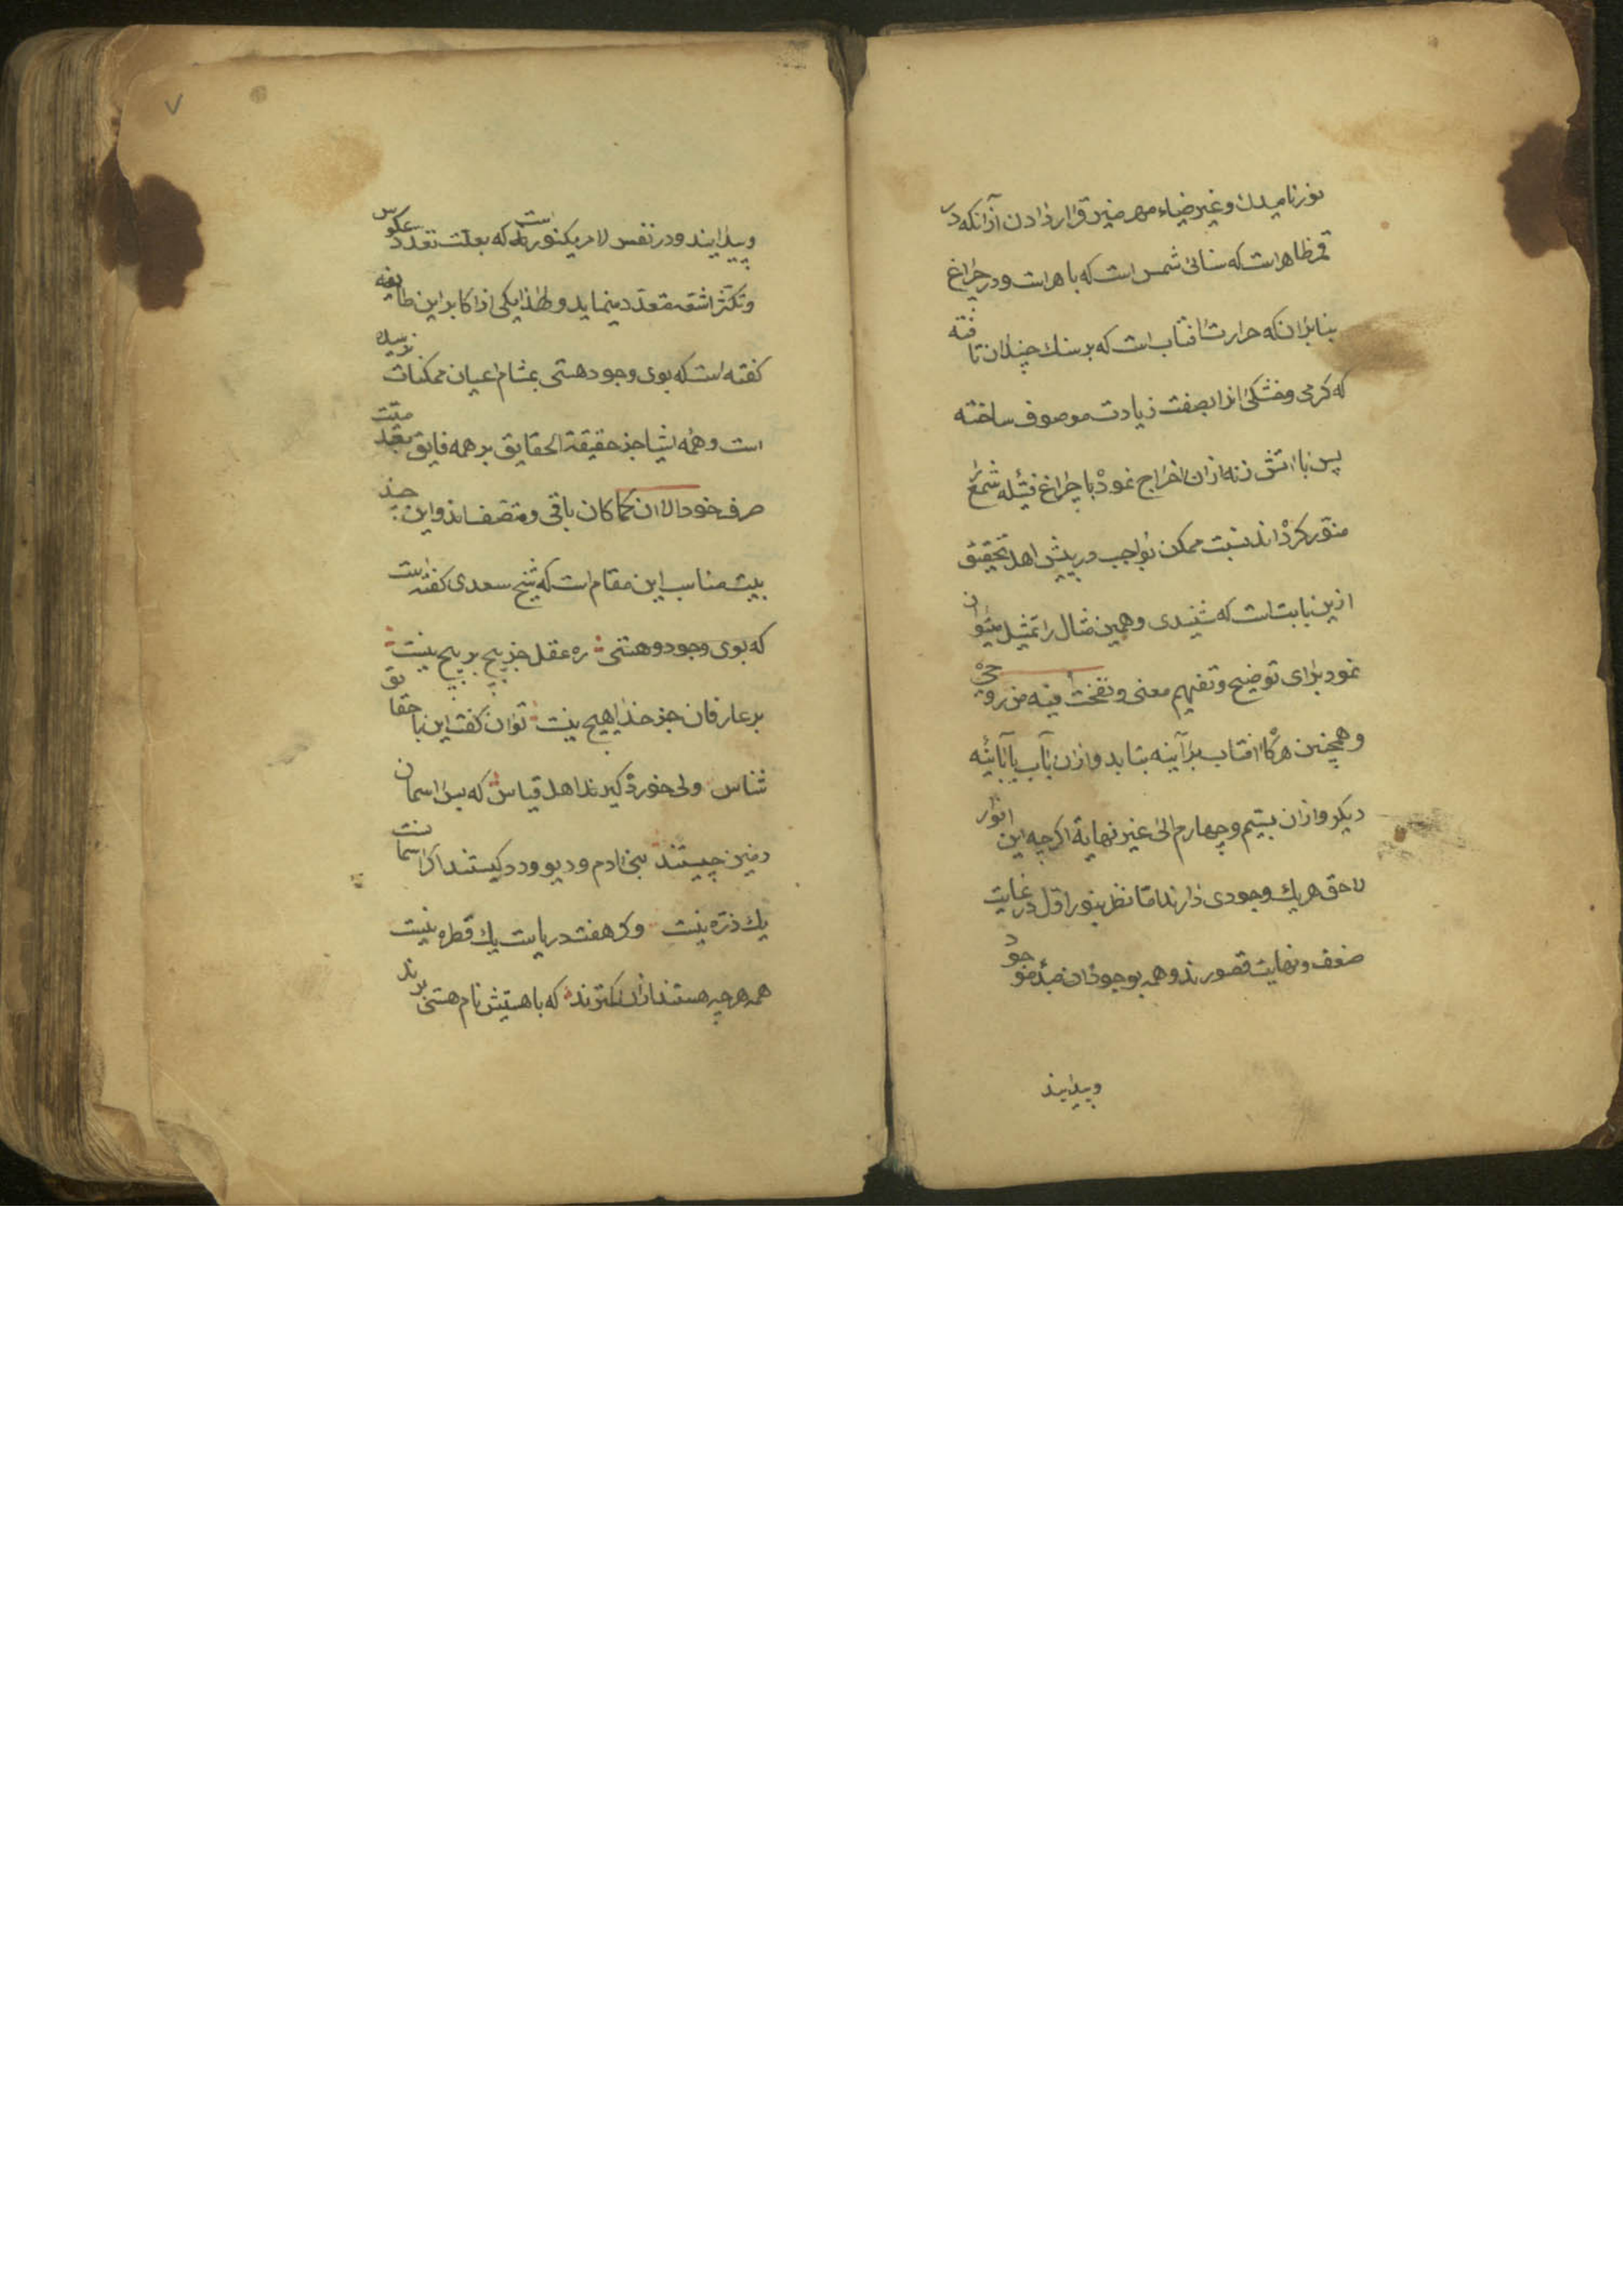 نور نامیدن و غیر ضیاء مهر منیر قرار دادن از آنکه در
قمر ظاهر است که سنائی شمس است که باهر است و در چراغ
بنا بر آن که حرارت افتاب است که بر سنك چندان تافته
که کرمی و خشکی انرا بصفت زیادت موصوف ساخته
پس با اتش زنه ازان اخراج نموده با چراغ فتیله شمع را
منور کرده اند نسبت ممکن بواجب در پیش اهل تحقیق
ازین بابت است که شنیدی و همین مثال را تمثیل میتوان
نمود برای توضیح و تفهیم معنی و نفخت فیه من روحی
و همچنین هرکاه افتاب بر آینه بتابد و ازان بآب یا بآینهٔ
دیکر و ازان بسیم و چهارم الی غیر نهایة اکرچه این انوار
لاحق هریك وجودی دارند اما نظر بنور اول در غایت
ضعف و نهایت قصورند و همه بوجود ان مبدٔ موجود
و پیدایند
و پیدایند و در نفس لامر یکنور است که بعلت تعدد عکوس
و تکثر اشعه متعدد مینماید و لهذا یکی از اکابر این طایفه
کفته است که بوی وجود هستی بمشام اعیان ممکنات نرسیده
است و همه اشیا جز حقیقة الحقایق بر همه فایق بعدمیت
صرف خود الان کما کان باقی و متصف اند و این چند
بیت مناسب این مقام است که شیخ سعدی کفته است
که بوی وجود و هستی ره عقل جز پیچ بر پیچ نیست
بر عارفان جز خدا هیچ نیست توان کفت این با حقایق
شناس ولی خورده کیرند اهل قیاس که پس اسمان
و زمین چیستند بنی ادم و دیو و دد کیستند اکر اسمانست
یك ذره نیست وکر هفت دریاست یك قطره نیست
همه هرچه هستند ازان کمترند که با هستیش نام هستی برند